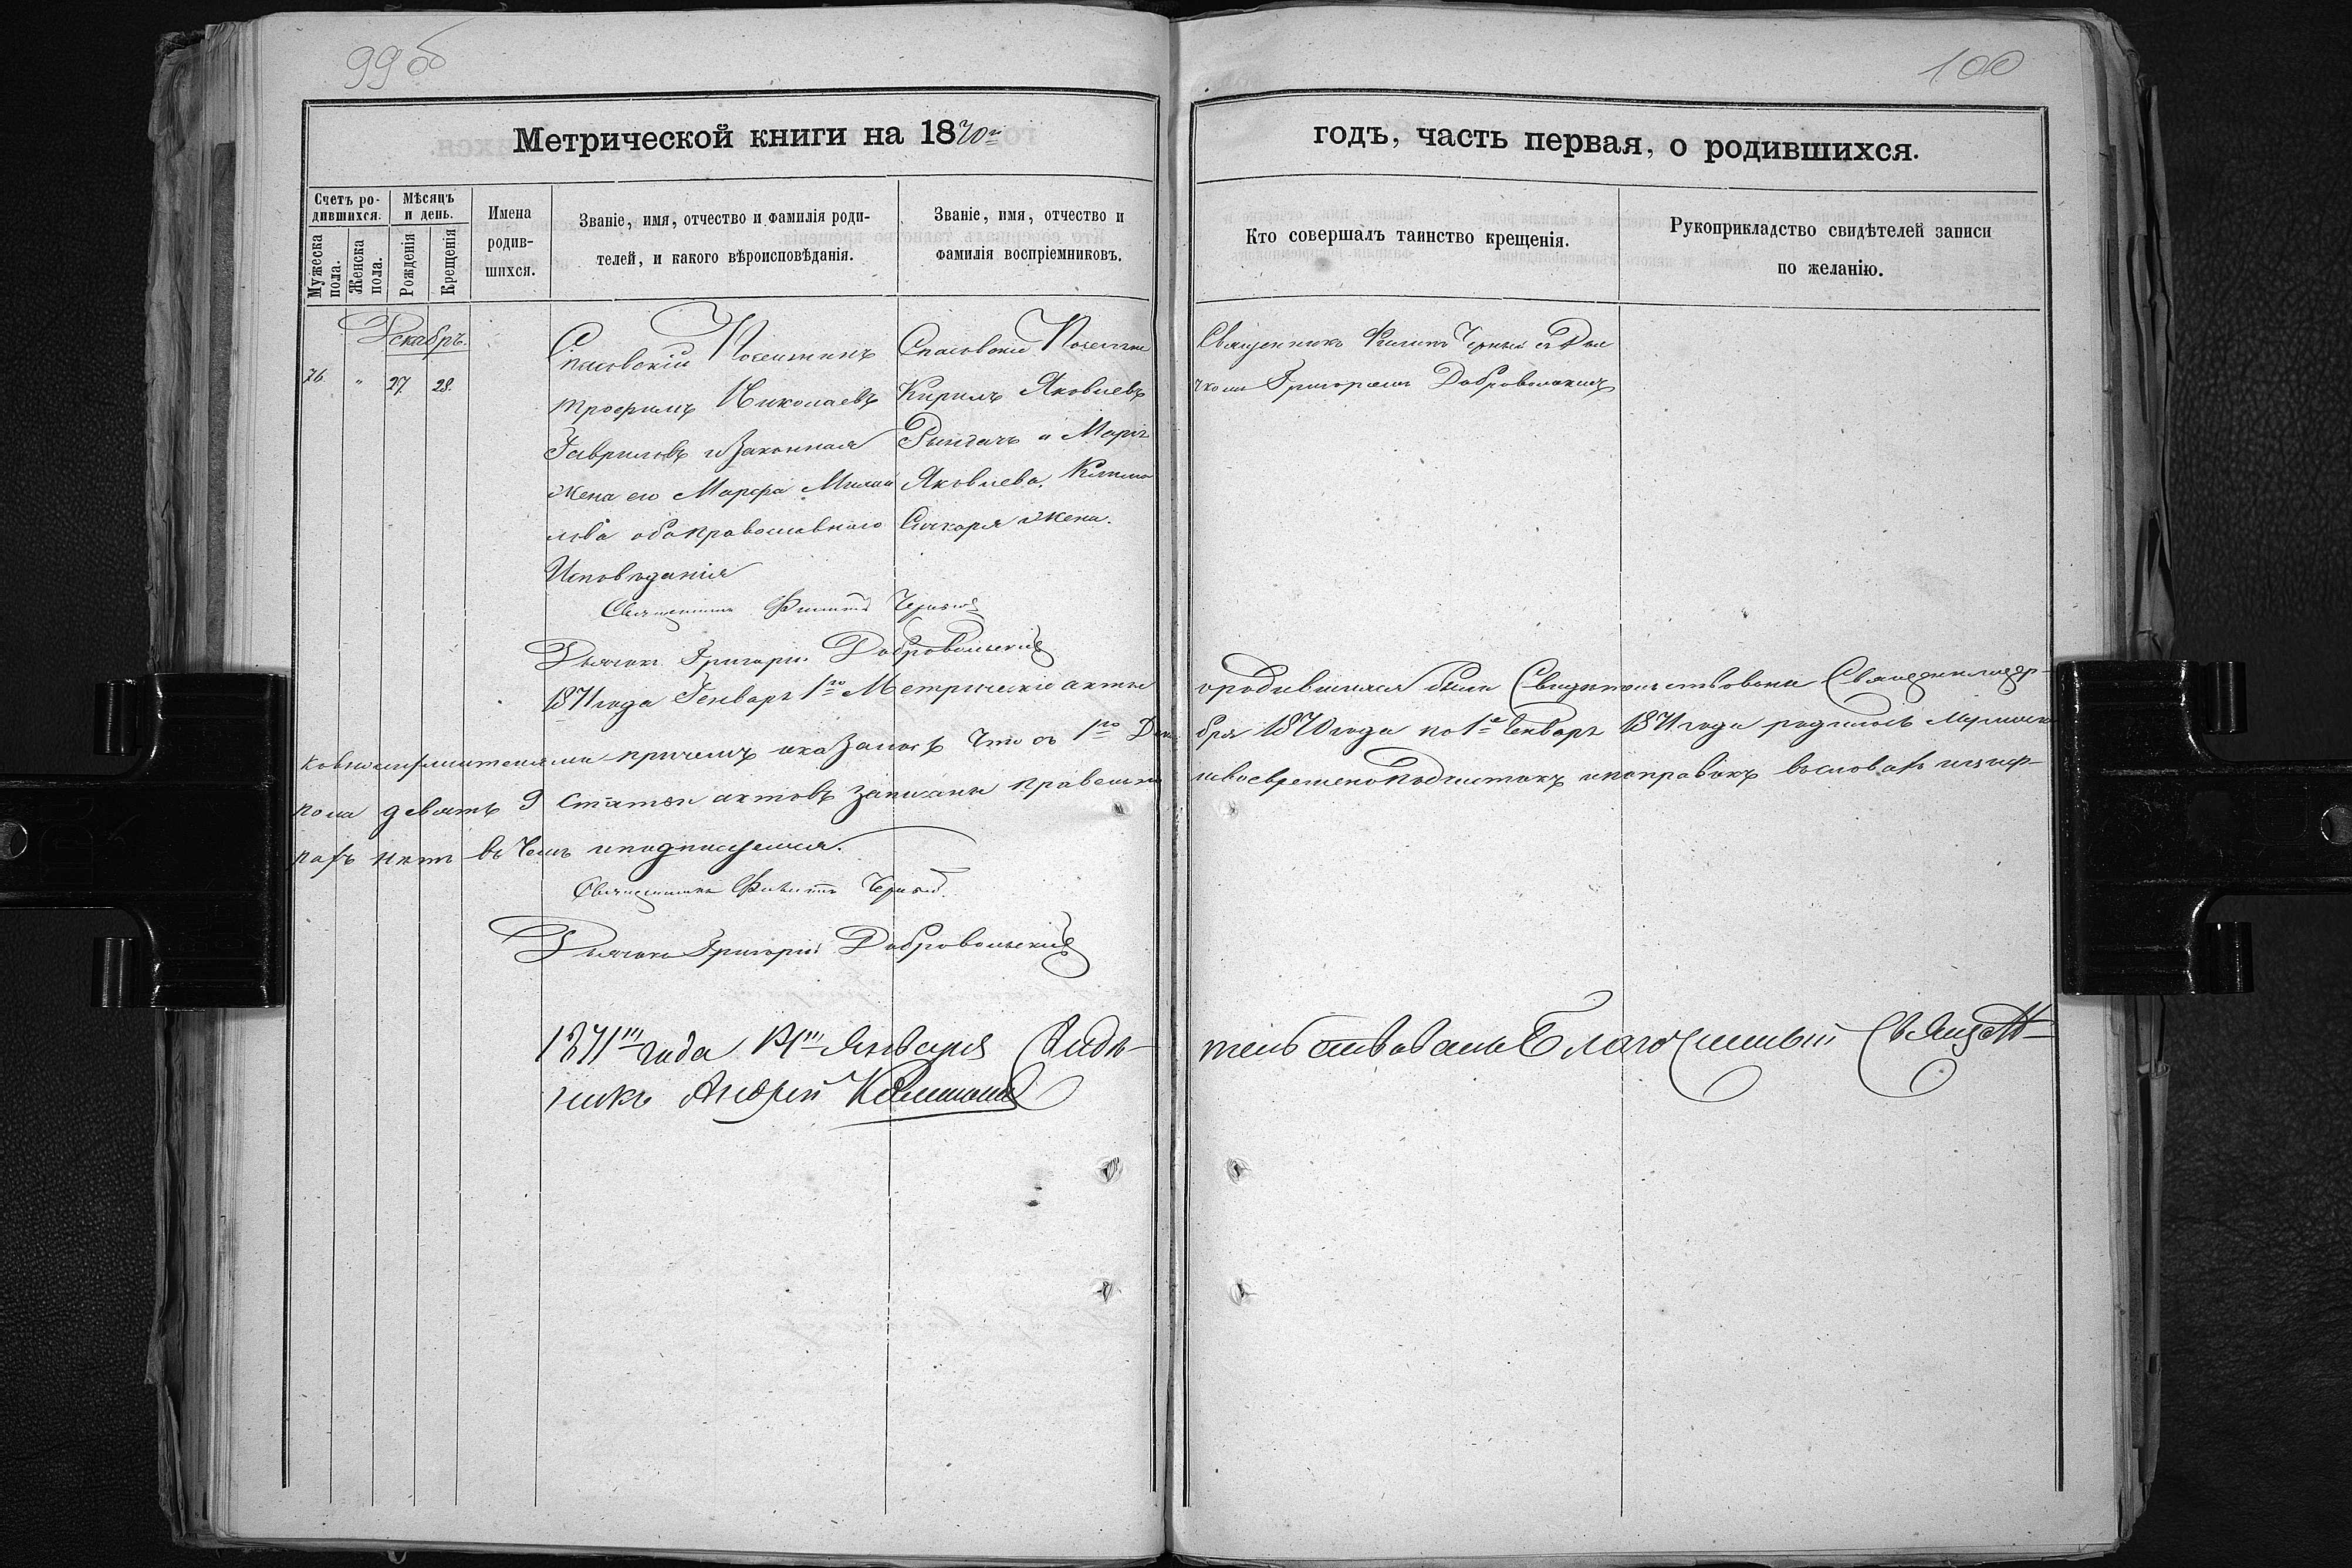 99об
100
Метрической книги на 1870й
годъ, часть первая, о родившихся.
Счетъ родившихся.
Мужеска пола.
Женска пола.
Мѣсяцъ и день.
Рожденія
Крещенія
Имена родив-
шихся.
Званіе, имя, отчество и фамилія роди-
телей, и какого вѣроисповѣданія.
Званіе, имя, отчество и
фамилія воспріемниковъ.
Кто совершалъ таинство крещенія.
Рукоприкладство свидѣтелей записи
по желанію.
Декабрь.
76. " 27 28.
Спасовскій Поселянинъ
Трофимъ Николаевъ
Гавриловъ и Законная
жена его Марфа
лова оба православнаго
Исповѣданія
Спасовски
Кирилъ Яковлевъ
и
Яковлева,
жена.
Священникъ Филипъ Черный съ Дья
чкомъ Григориемъ Добровольскимъ
Священникъ Филиппъ Черный
Дьячокъ Григорій Добровольскій
1871 года Генваря 1го Метрическіе акты
о родившихся были Свидетельствованы Священноцер-
ковнослужителями причемъ оказалось что съ 1го Дека
бря 1870 года по 1е Генваря 1871 года родилось Мужеска
пола девять 9 Статьи актовъ записаны правельно
и своевремено подчистокъ и поправокъ въ словахъ и циф-
рахъ нетъ въ чемъ и подписуемся.
Священникъ Филиппъ Черный
Дьячокъ Григорій Добровольскій
1871го года Января Свидѣ-
тельствовалъ Благочинный Священ-
никъ Андрей